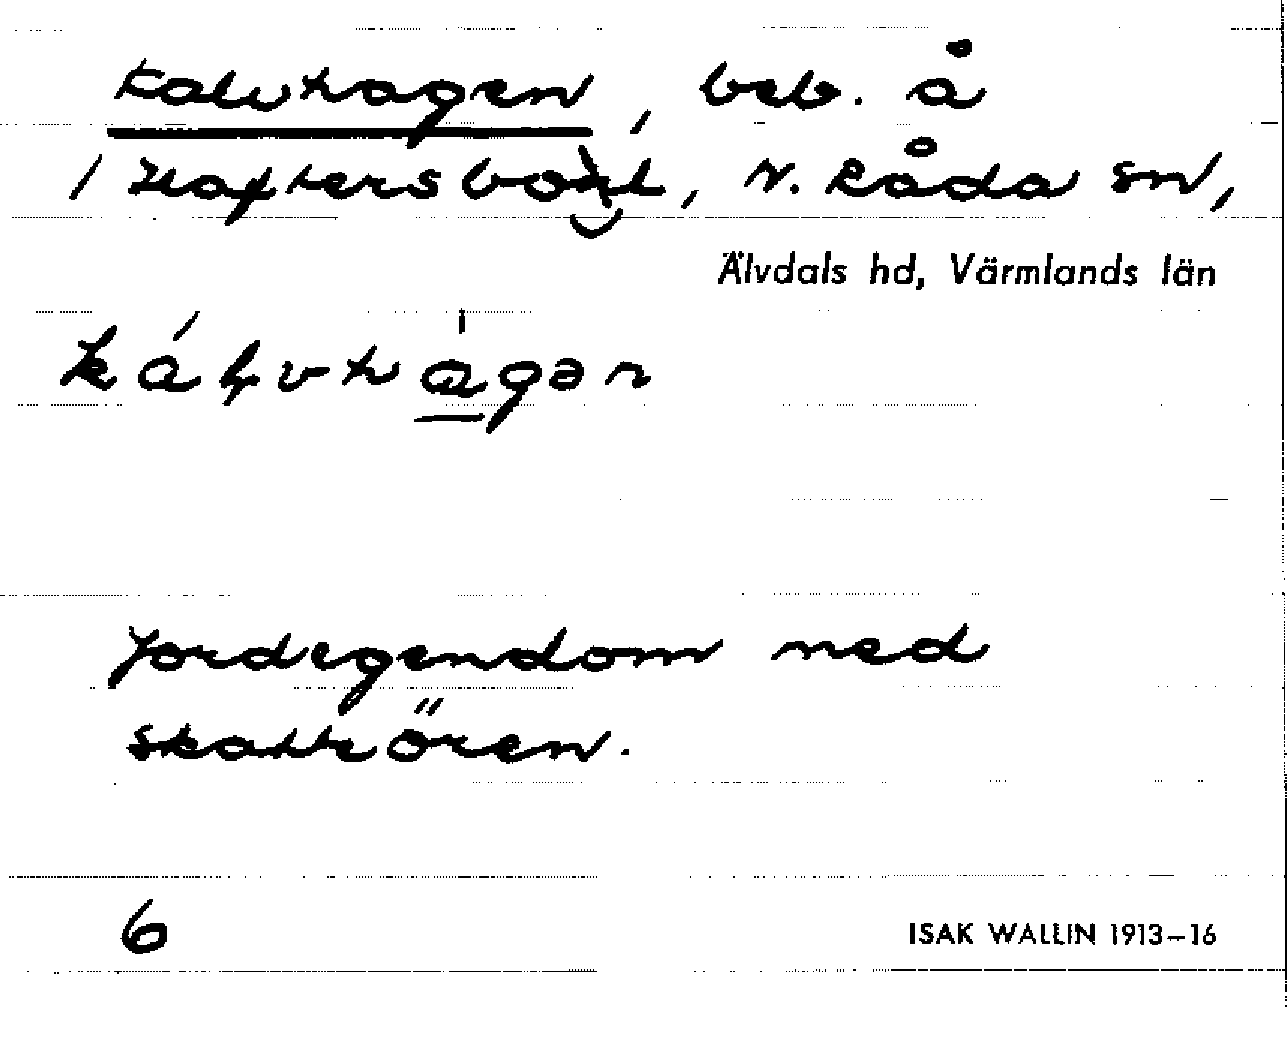 Kalvhagen, beb. å
/ Haftersbol, N. Råda sn,
Älvdals hd, Värmlands län
Jordegendom med
skattören.
6
ISAK WALLIN 1913–16